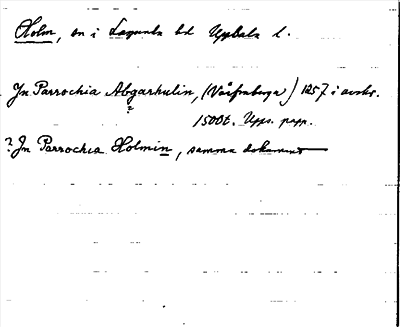 Holm, sn i Lagunda hd Uppsala l.
In Parrochia Abgarhulin, (Vårfrukyrga) 1257 i avskr.
?
1500t. Upps. papp.
? In Parrochia Holmin, samma dokument